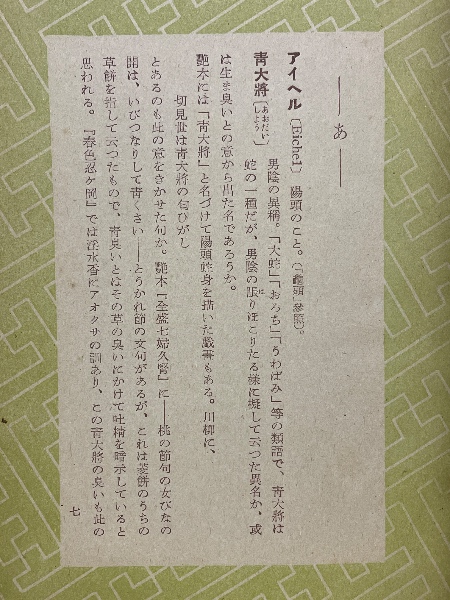 ――あ――
アイヘル〔Eichel〕 陽頭のこと。(「龜頭」參照)。
靑大將〔あおだいしよう〕 男陰の異稱。「大蛇」「おろち」「うわばみ」等の類語で、靑大將は
蛇の一種だが、男陰の脹りほこりたる樣に擬して云つた異名か、或
は生ま臭いとの意から出た名であろうか。
艶本には「靑大將」と名づけて陽頭蛇身を描いた戲畫もある。川柳に、
切見世は靑大將の匂ひがし
とあるのも此の意をきかせた句か。艶本『全盛七婦久腎』に――桃の節句の女びなの
開は、いびつなりして靑くさい――とうかれ節の文句があるが、これは菱餠のうちの
草餠を指して云つたもので、靑臭いとはその草の臭いにかけて吐精を暗示していると
思われる。『春色忍ケ岡』では淫水香にアオクサの訓あり、この靑大將の臭いも此の
七